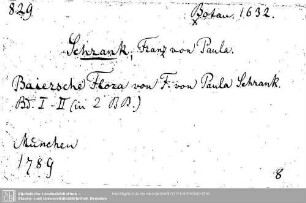 829 Botan. 1632.
Schrank, Franz von Paula.
Baiersche Flora von F. von Paula Schrank.
Bd. I-II (in 2 BB.)
München
1789
8
Sächsische Landesbibliothek -
Staats- und Universitätsbibliothek Dresden